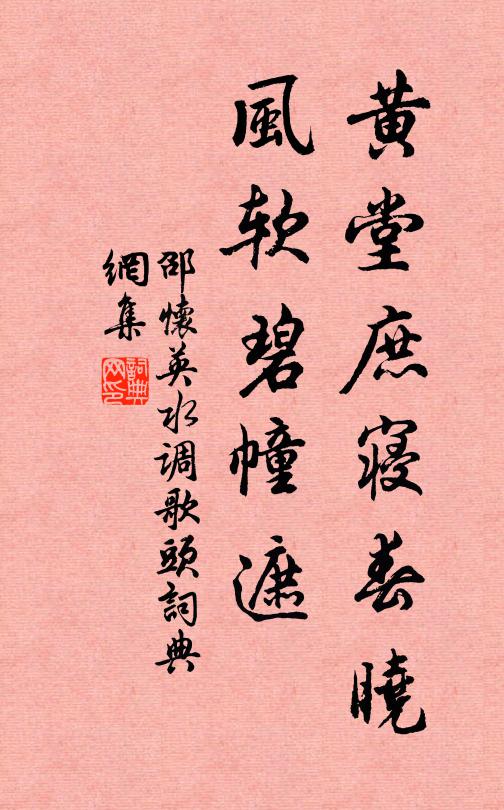 黄堂庶寝春曉
風软碧幢遮
邵懷英水调歌頭詞典
網集
詞典
网印